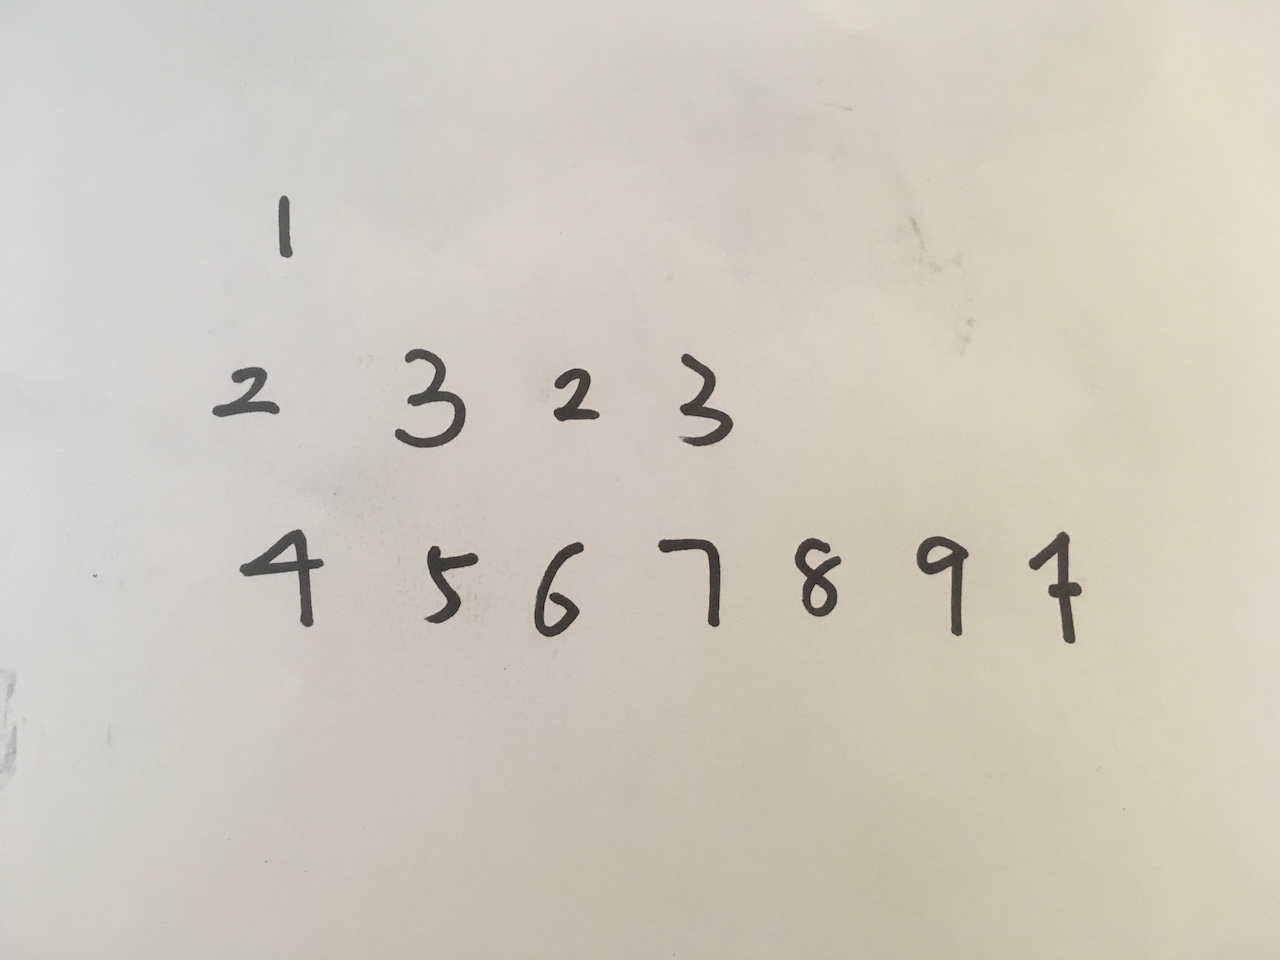 1
2 3 2 3
4 5 6 7 8 9